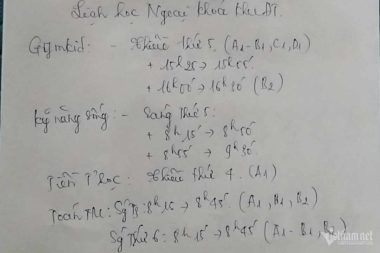 Lịch học Ngoại khoá khu A1.
Gymkid: - Chiều thứ 5. (A1-B1, C1, D1)
+ 15h25 → 15h55
+ 16h00 → 16h30 (B2)
Kỹ năng sống: - Sáng thứ 5:
+ 8h15 → 8h50
+ 8h55 → 9h30
Tiền T'học: Chiều thứ 4. (A1)
Toán TM: Sg T3: 8h15 → 8h45 (A1, B1, B2)
Sg Thứ 6: 8h15 → 8h45 (A1 - B1, B2)
vietnamnet